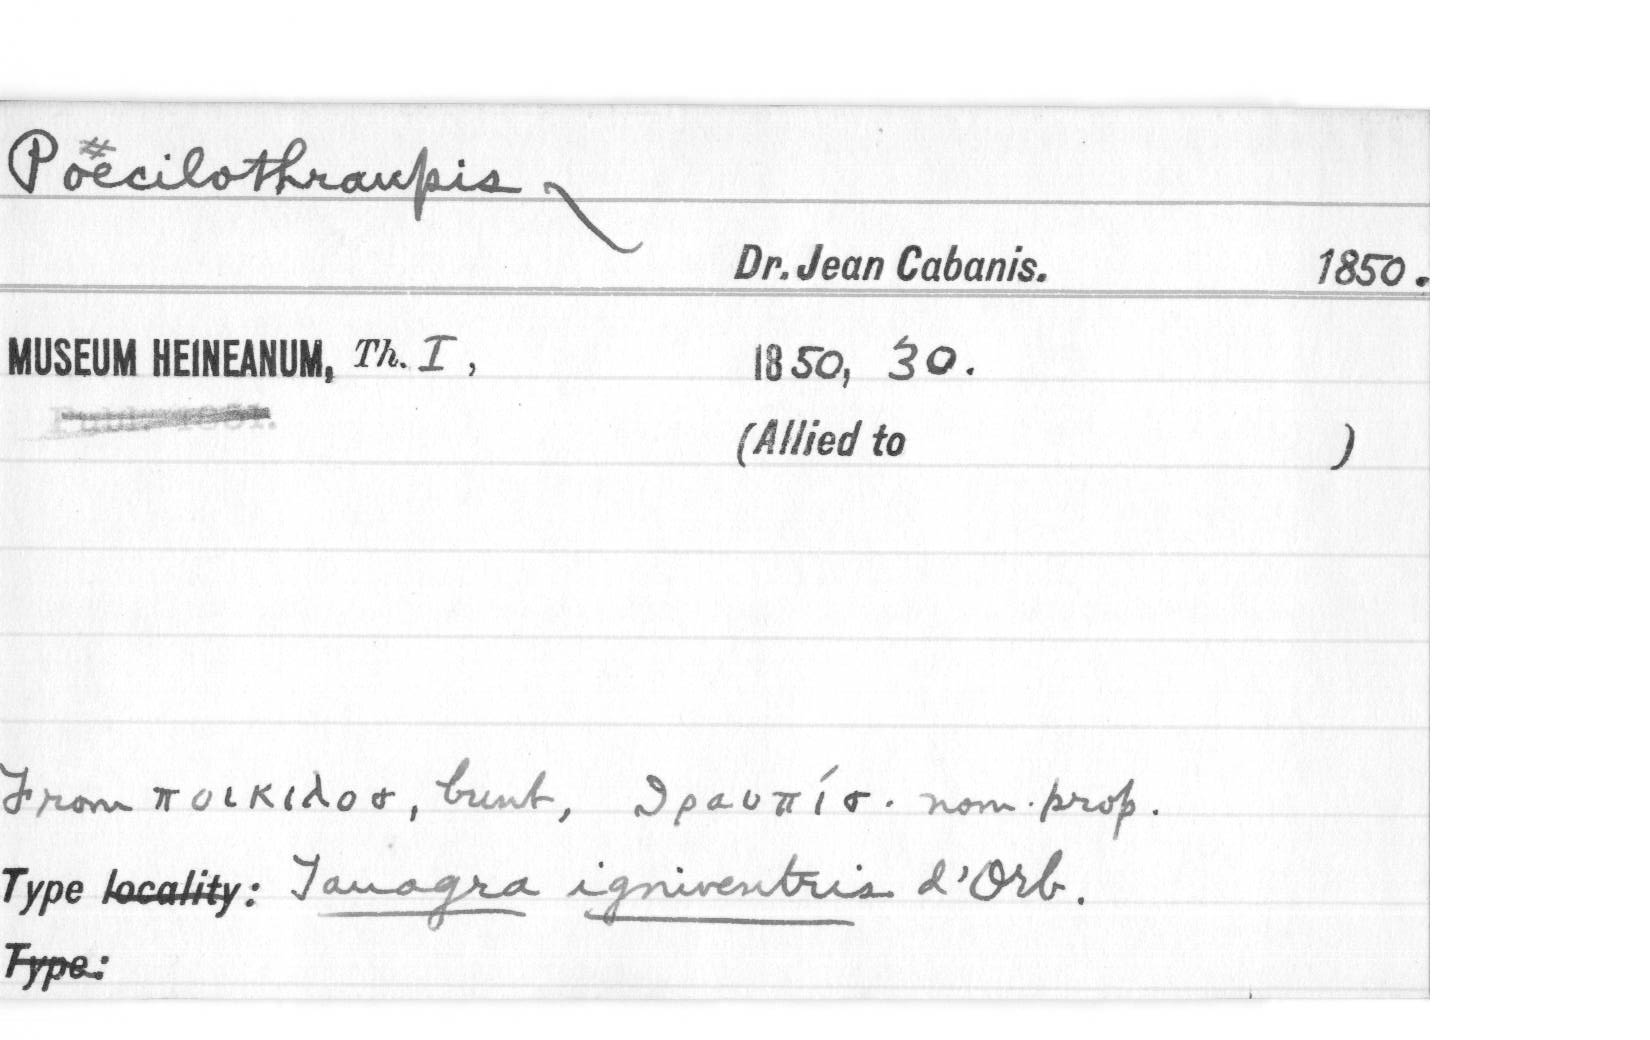 Poecilothraupis
Dr. Jean Cabanis. 1850.
MUSEUM HEINEANUM, Th. I, 1850, 30.
Publ. 1851.
(Allied to )
From ποικιλοσ, bunt, θραυπίσ. nom. prop.
Type locality: Tanagra igniventris d'Orb.
Type: